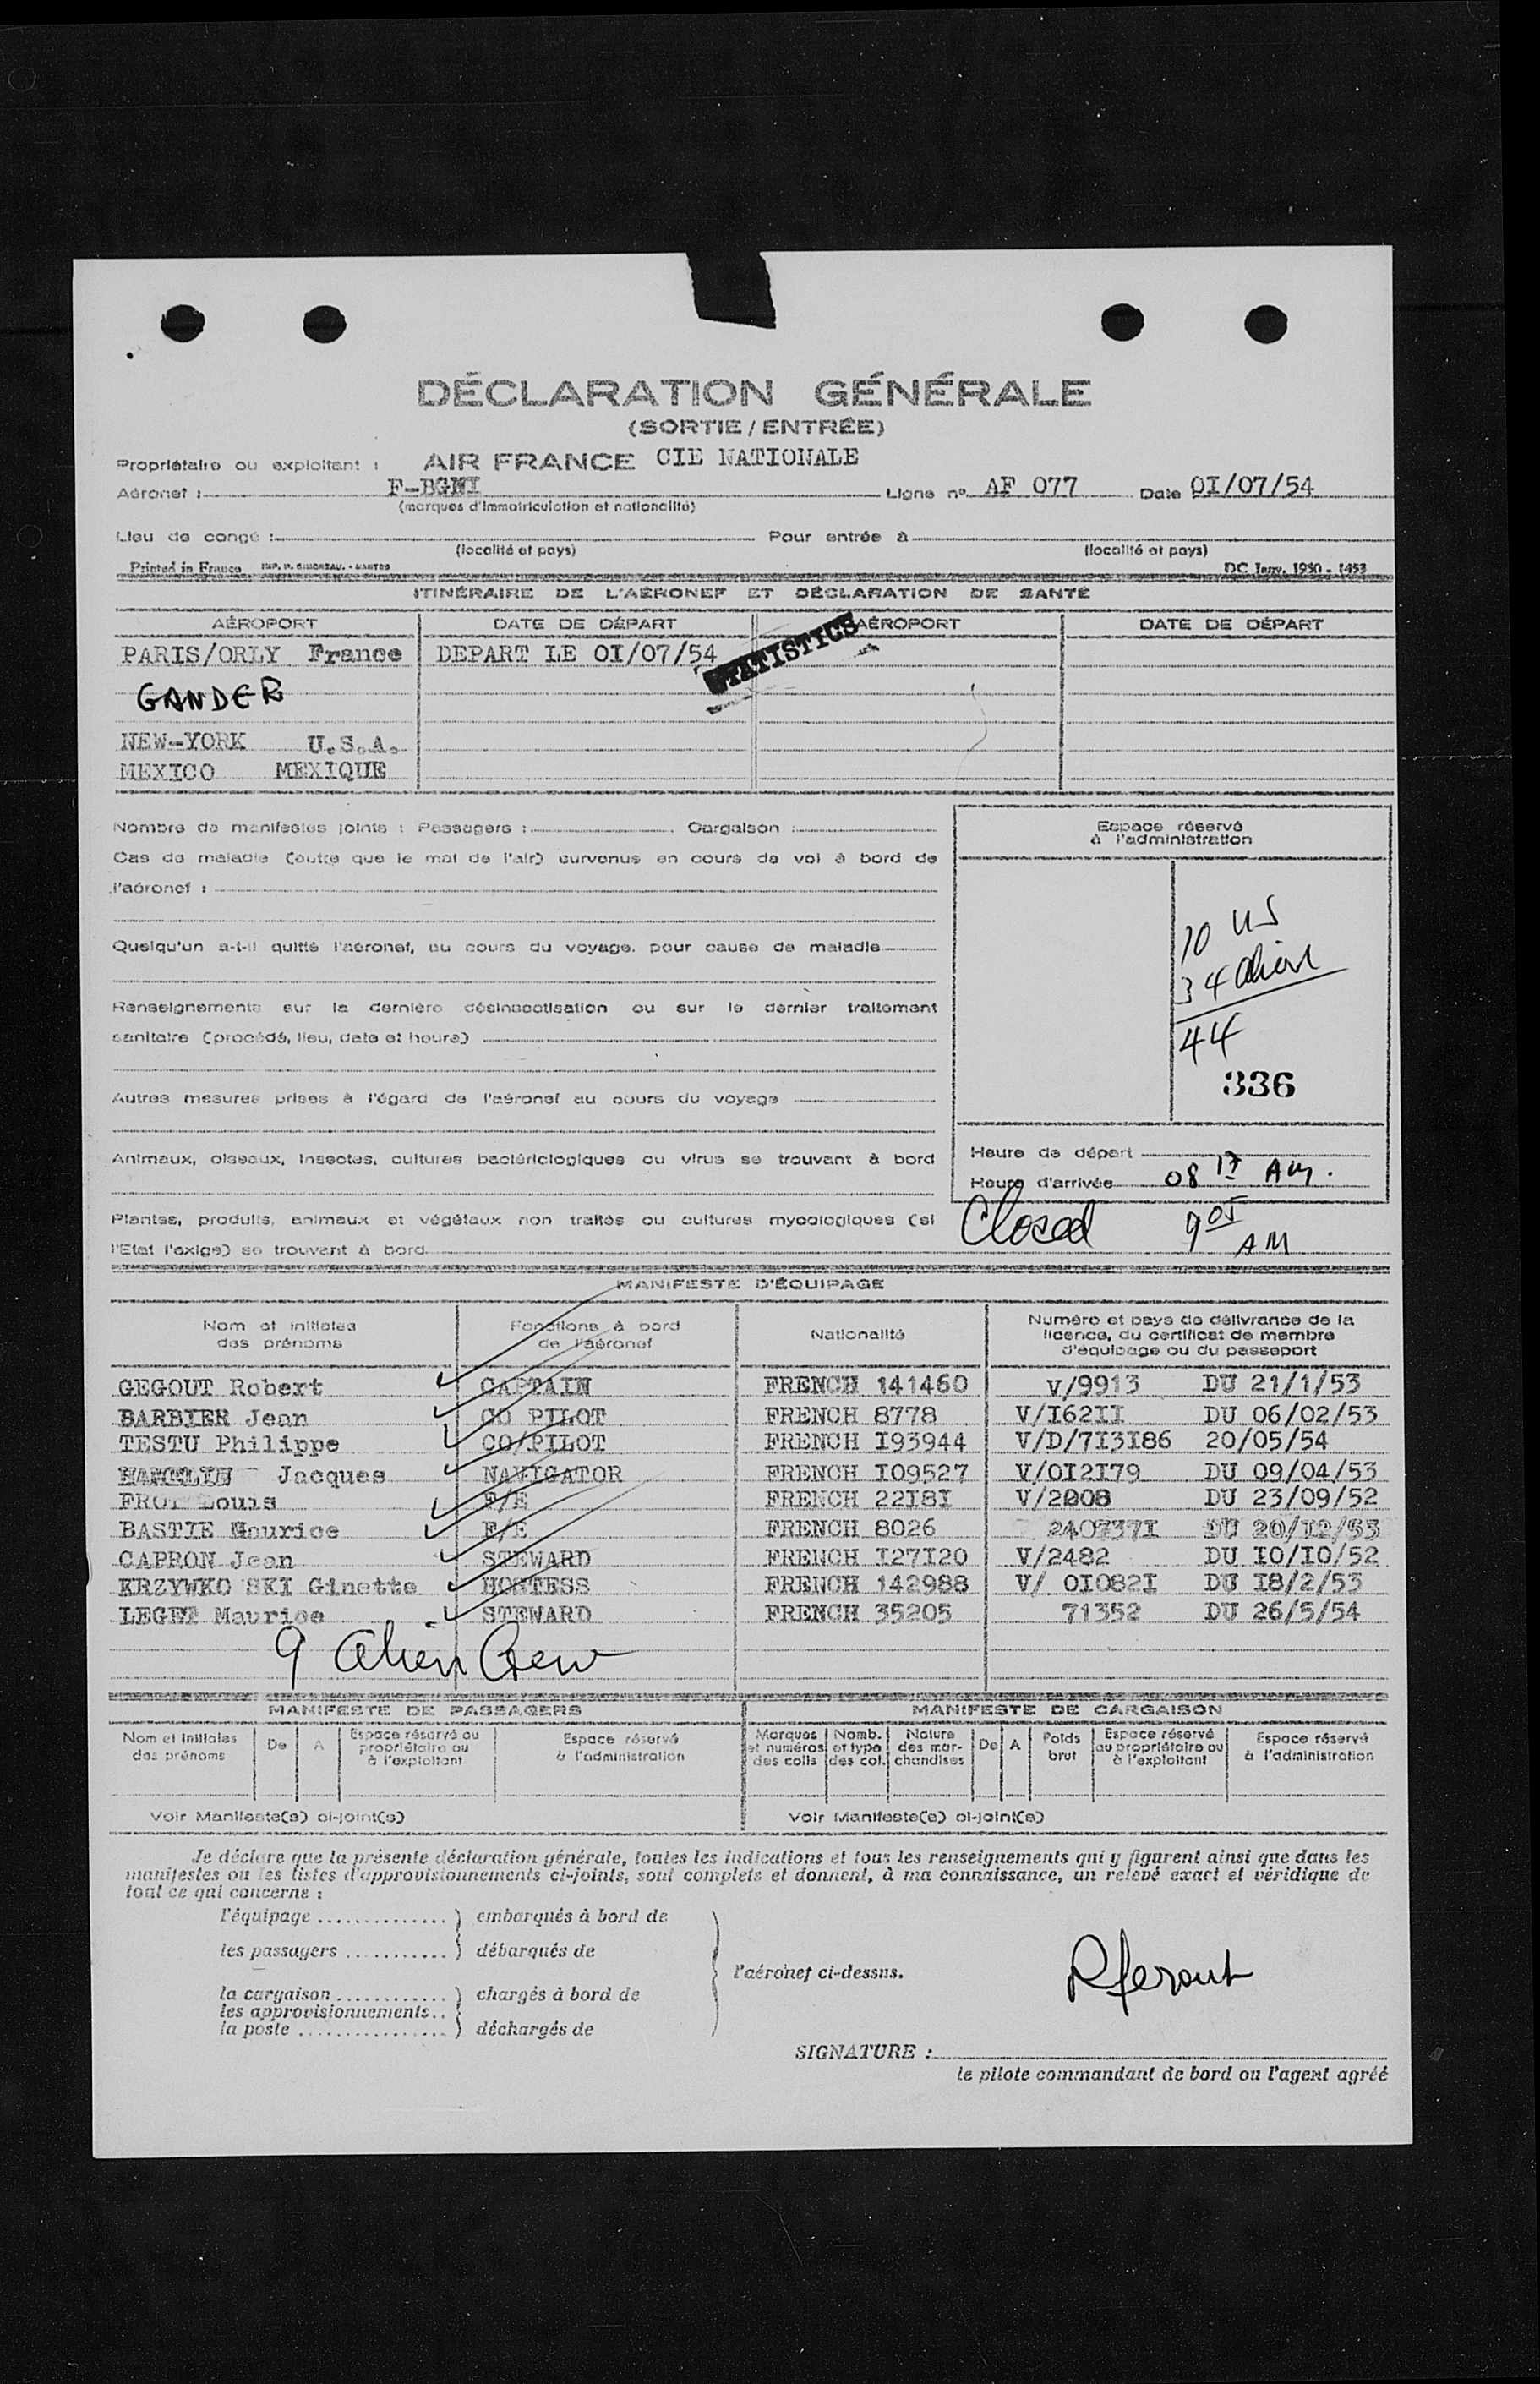 DÉCLARATION GÉNÉRALE
(SORTIE / ENTRÉE)
Propriétaire ou exploitant : AIR FRANCE CIE NATIONALE
Aéronef : F-BGNI Ligne n° AF 077 Date 0I/07/54
(marques d'immatriculation et nationalité)
Lieu de congé : Pour entrée à
(localité et pays) (localité et pays)
Printed in France DC Janv. 1950 - 1453
ITINÉRAIRE DE L'AÉRONEF ET DÉCLARATION DE SANTÉ
AÉROPORT DATE DE DÉPART AÉROPORT DATE DE DÉPART
PARIS/ORLY France DEPART LE 0I/07/54
STATISTICS
GANDER
NEW-YORK U.S.A.
MEXICO MEXIQUE
Nombre de manifestes joints : Passagers : Cargaison :
Cas de maladie (autre que le mal de l'air) survenus en cours de vol à bord de
l'aéronef :
Quelqu'un a-t-il quitté l'aéronef, au cours du voyage, pour cause de maladie
Renseignements sur la dernière désinsectisation ou sur le dernier traitement
sanitaire (procédé, lieu, date et heure)
Autres mesures prises à l'égard de l'aéronef au cours du voyage
Animaux, oiseaux, insectes, cultures bactériologiques ou virus se trouvant à bord
Plantes, produits, animaux et végétaux non traités ou cultures mycologiques (si
l'Etat l'exige) se trouvant à bord
Espace réservé
à l'administration
10 US
34 alien
44
336
Heure de départ
Heure d'arrivée 08 17 AM.
Closed 9 05 AM
MANIFESTE D'ÉQUIPAGE
Nom et initiales des prénoms Fonctions à bord de l'aéronef Nationalité Numéro et pays de délivrance de la licence, du certificat de membre d'équipage ou du passeport
GEGOUT Robert CAPTAIN FRENCH 141460 V/9913 DU 21/1/53
BARBIER Jean CO PILOT FRENCH 8778 V/I62II DU 06/02/53
TESTU Philippe CO/PILOT FRENCH I93944 V/D/7I3I86 20/05/54
Jacques NAVIGATOR FRENCH I09527 V/0I2I79 DU 09/04/53
Louis F/E FRENCH 22I8I V/2008 DU 23/09/52
BASTIE Maurice F/E FRENCH 8026 240737I DU 20/I2/53
CAPRON Jean STEWARD FRENCH I27I20 V/2482 DU I0/I0/52
KRZYWKO SKI Ginette HOSTESS FRENCH 142988 V/ 0I082I DU I8/2/53
LEGET Maurice STEWARD FRENCH 35205 71352 DU 26/5/54
9 alien Crew
MANIFESTE DE PASSAGERS MANIFESTE DE CARGAISON
Nom et initiales des prénoms De A Espace réservé au propriétaire ou à l'exploitant Espace réservé à l'administration Marques et numéros des colis Nomb. et type des col. Nature des marchandises De A Poids brut Espace réservé au propriétaire ou à l'exploitant Espace réservé à l'administration
Voir Manifeste(s) ci-joint(s) Voir Manifeste(s) ci-joint(s)
Je déclare que la présente déclaration générale, toutes les indications et tous les renseignements qui y figurent ainsi que dans les
manifestes ou les listes d'approvisionnements ci-joints, sont complets et donnent, à ma connaissance, un relevé exact et véridique de
tout ce qui concerne :
l'équipage .............. ) embarqués à bord de
les passagers ........... ) débarqués de
l'aéronef ci-dessus.
la cargaison ............ ) chargés à bord de
les approvisionnements..
la poste ................ ) déchargés de
SIGNATURE :
le pilote commandant de bord ou l'agent agréé